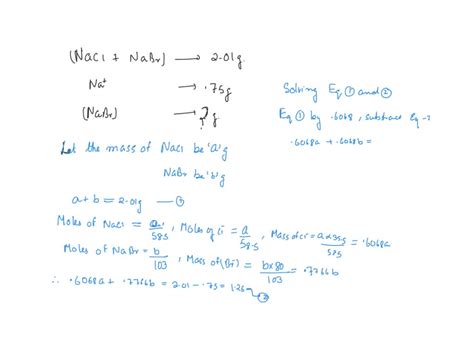 (NaCl + NaBr) → 2.01g
Na⁺ → .75g
(NaBr) → ?g
Let the mass of NaCl be 'a' g
NaBr be 'b' g
a+b = 2.01g — ①
Moles of NaCl = a/58.5, Moles of Cl = a/58.5, Mass of Cl = a×35.5/58.5 = .6068a
Moles of NaBr = b/103, Mass of (Br) = b×80/103 = .7766b
∴ .6068a + .7766b = 2.01 - .75 = 1.26 — ②
Solving Eq ① and ②
Eq ① by .6068, subtract Eq -2
.6068a + .6068b =